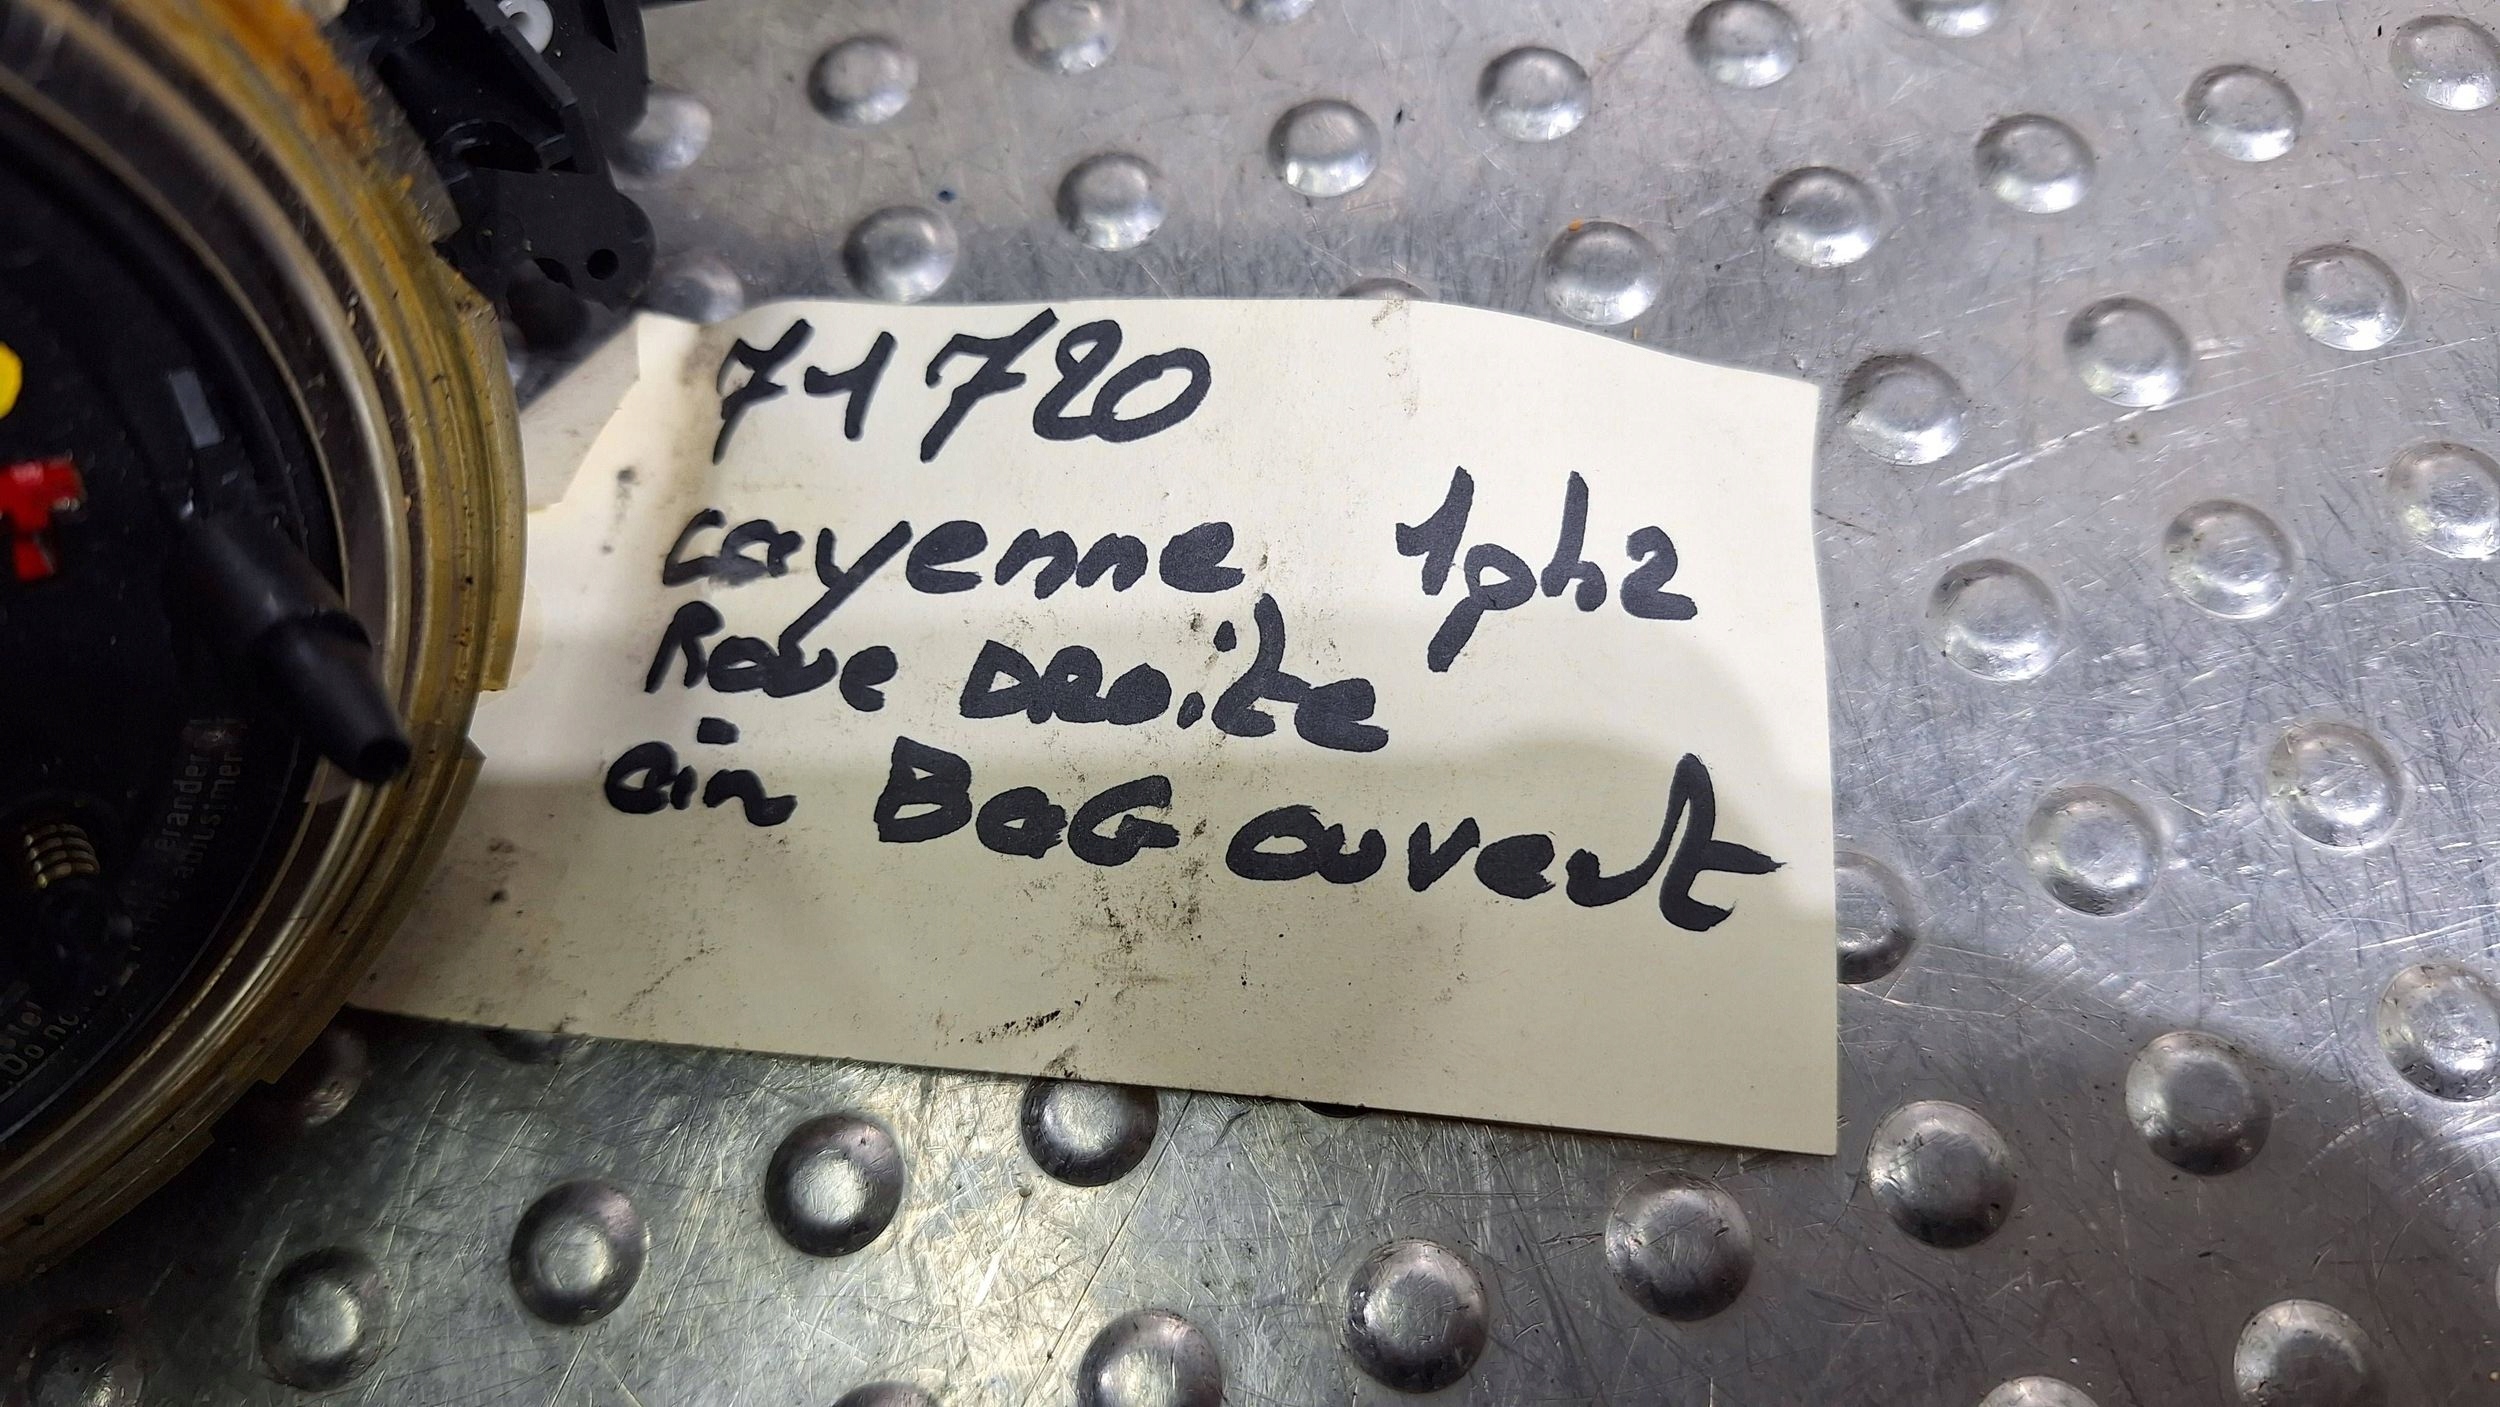 71720
cayenne 1ph2
Roue DRoite
air BAG ouvert